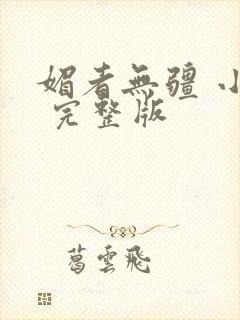 媚者無疆 小
完整版
葛雲飛